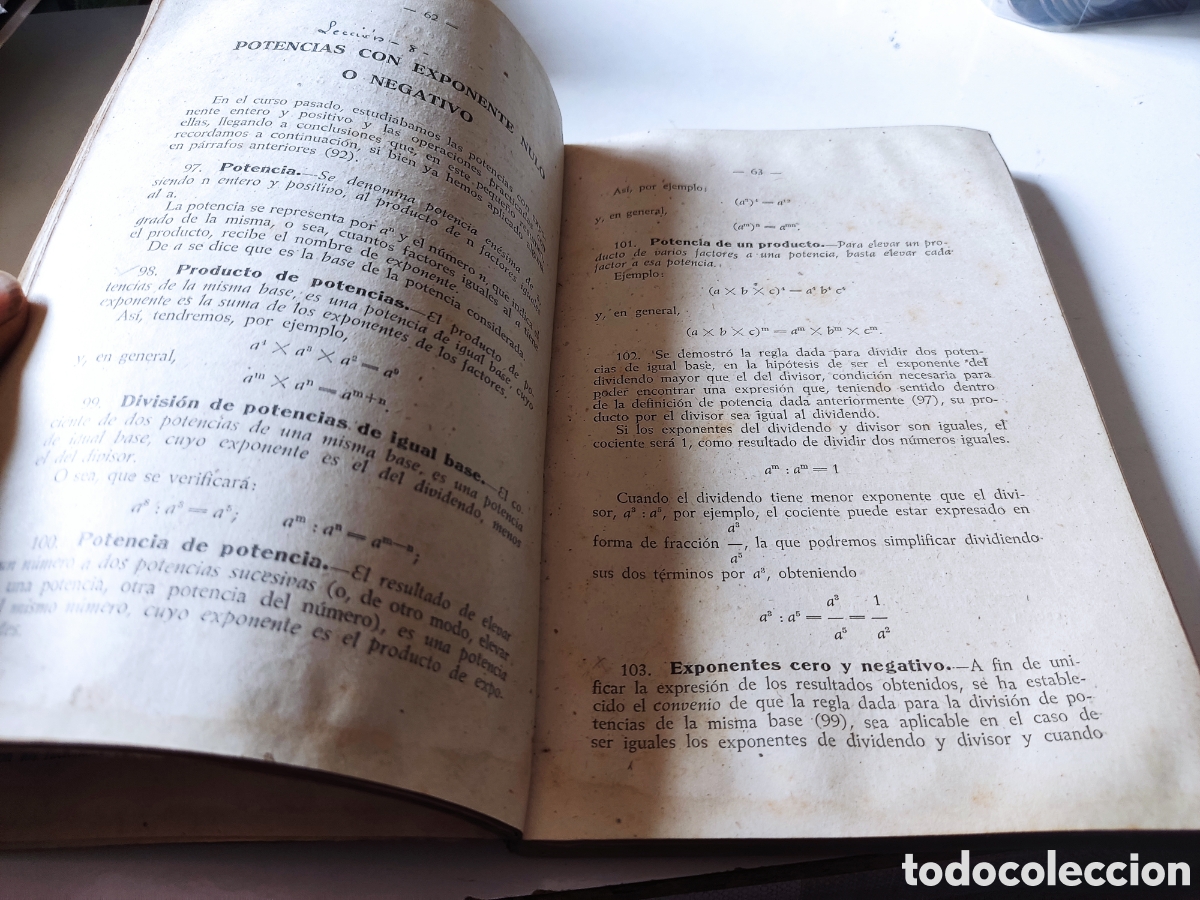 — 62 —
Lección - 8 -
POTENCIAS CON EXPONENTE NULO
O NEGATIVO
En el curso pasado, estudiábamos las potencias con
nente entero y positivo y las operaciones practicadas
ellas, llegando a conclusiones que, en este pequeño
recordamos a continuación, si bien ya hemos aplicado
en párrafos anteriores (92).
97. Potencia.—Se denomina potencia enésima de
siendo n entero y positivo, al producto de n factores iguales
al a.
La potencia se representa por aⁿ y el número n, que indica el
grado de la misma, o sea, cuantos factores iguales al a tiene
el producto, recibe el nombre de exponente.
De a se dice que es la base de la potencia considerada.
98. Producto de potencias.—El producto de po-
tencias de la misma base, es una potencia de igual base, cuyo
exponente es la suma de los exponentes de los factores.
Así, tendremos, por ejemplo,
y, en general,
aᵐ × aⁿ = aᵐ⁺ⁿ.
99. División de potencias de igual base.—El co-
ciente de dos potencias de una misma base, es una potencia
de igual base, cuyo exponente es el del dividendo, menos
el del divisor.
O sea, que se verificará:
a⁸ : a³ = a⁵; aᵐ : aⁿ = aᵐ⁻ⁿ;
100. Potencia de potencia.—El resultado de elevar
un número a dos potencias sucesivas (o, de otro modo, elevar
una potencia, otra potencia del número), es una potencia
mismo número, cuyo exponente es el producto de expo-
— 63 —
Así, por ejemplo:
y, en general,
(aᵐ)ⁿ = aᵐⁿ.
101. Potencia de un producto.—Para elevar un pro-
ducto de varios factores a una potencia, basta elevar cada
factor a esa potencia.
Ejemplo:
(a × b × c)⁴ = a⁴ b⁴ c⁴
y, en general,
(a × b × c)ᵐ = aᵐ × bᵐ × cᵐ.
102. Se demostró la regla dada para dividir dos poten-
cias de igual base, en la hipótesis de ser el exponente del
dividendo mayor que el del divisor, condición necesaria para
poder encontrar una expresión que, teniendo sentido dentro
de la definición de potencia dada anteriormente (97), su pro-
ducto por el divisor sea igual al dividendo.
Si los exponentes del dividendo y divisor son iguales, el
cociente será 1, como resultado de dividir dos números iguales.
aᵐ : aᵐ = 1
Cuando el dividendo tiene menor exponente que el divi-
sor, a³ : a⁵, por ejemplo, el cociente puede estar expresado en
forma de fracción a³/a⁵, la que podremos simplificar dividiendo
sus dos términos por a³, obteniendo
a³ : a⁵ = a³/a⁵ = 1/a²
103. Exponentes cero y negativo.—A fin de uni-
ficar la expresión de los resultados obtenidos, se ha estable-
cido el convenio de que la regla dada para la división de po-
tencias de la misma base (99), sea aplicable en el caso de
ser iguales los exponentes de dividendo y divisor y cuando
todocoleccion